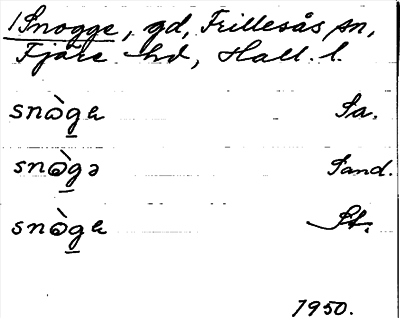 1 Snogge, gd, Frillesås sn,
Fjäre hd, Hall. l.
snɷ̀g̲ɐ Sa.
snɷ̀g̲ə Sand.
snɷ̀g̲ɐ St.
1950.